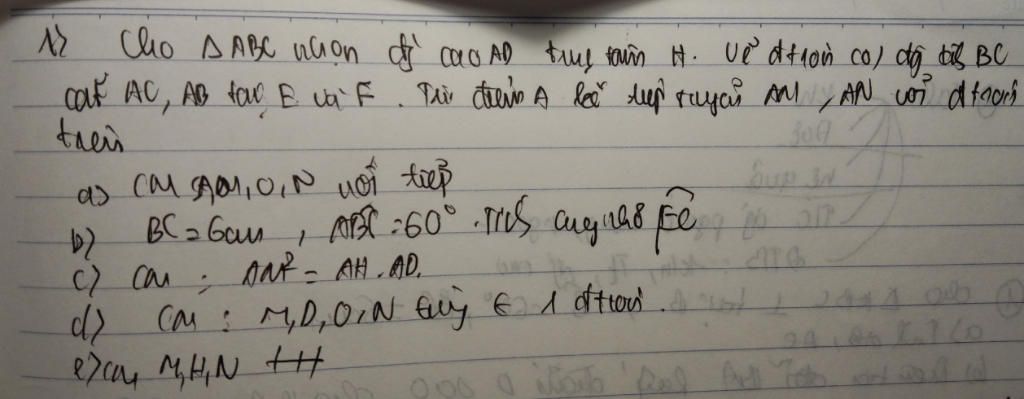 1) Cho Δ ABC nhọn đg cao AD trực tâm H. Vẽ đtròn (O) đg kính BC
cắt AC, AB tại E và F. Từ điểm A kẻ tiếp tuyến AM, AN với đtròn
trên
a) CM AM,O,N nội tiếp
b) BC = 6cm, ABC = 60°. Tính cung nhỏ FC
c) CM : AM² = AH.AD.
d) CM : M,D,O,N cùng ∈ 1 đtròn.
e) CM M,H,N tH